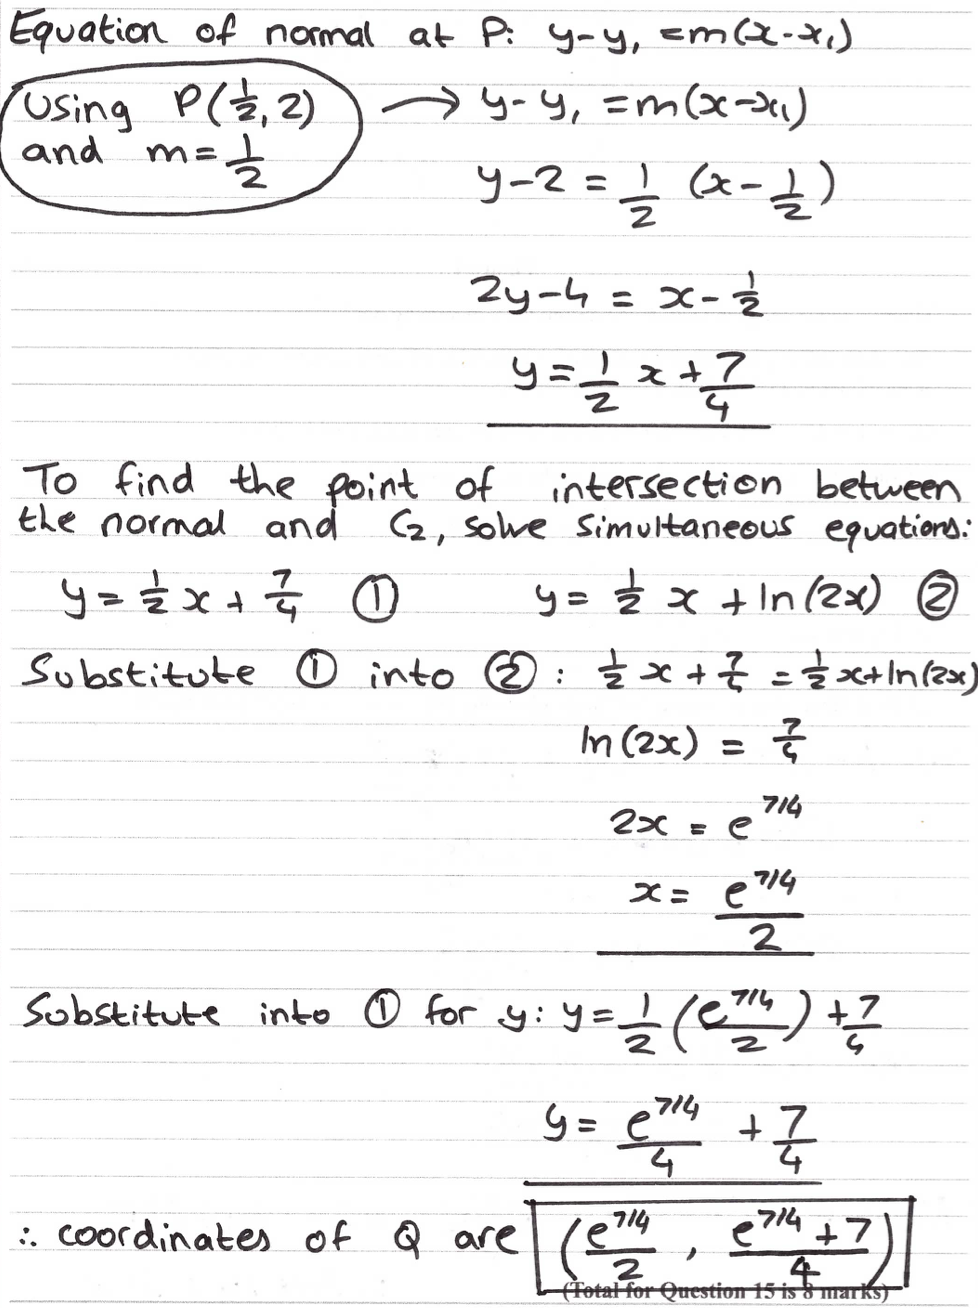 Equation of normal at P: y-y₁ = m(x-x₁)
Using P(½, 2) → y-y₁ = m(x-x₁)
and m = 1/2
y-2 = 1/2 (x - 1/2)
2y-4 = x - ½
y = 1/2 x + 7/4
To find the point of intersection between
the normal and C₂, solve simultaneous equations:
y = ½ x + 7/4 ① y = ½ x + ln(2x) ②
Substitute ① into ② : ½ x + 7/4 = ½x + ln(2x)
ln(2x) = 7/4
2x = e^7/4
x = e^7/4 / 2
Substitute into ① for y: y = 1/2 (e^7/4 / 2) + 7/4
y = e^7/4 / 4 + 7/4
∴ coordinates of Q are (e^7/4 / 2 , e^7/4 + 7 / 4)
(Total for Question 15 is 8 marks)